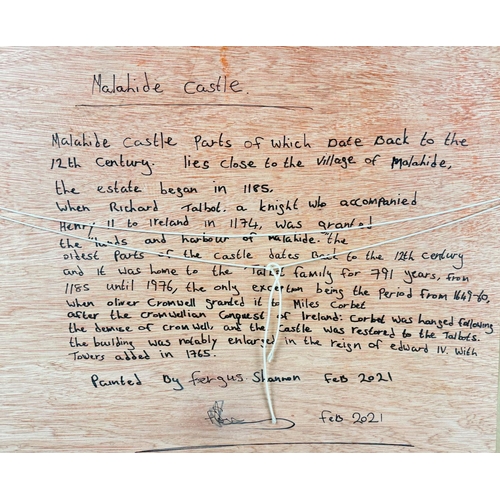 Malahide Castle.
Malahide Castle Parts of which Date Back to the
12th Century. lies close to the village of Malahide,
the estate began in 1185.
When Richard Talbot. a knight who accompanied
Henry II to Ireland in 1174, was granted
the lands and harbour of malahide. the
oldest Parts of the Castle dates Back to the 12th century
and it was home to the Talbot family for 791 years, from
1185 until 1976, the only exception being the Period from 1649-60,
when oliver Cromwell granted it to Miles Corbet
after the cromwellian Conquest of Ireland: Corbet was hanged following
the demise of cromwell, and the Castle was restored to the Talbots.
the building was notably enlarged in the reign of edward IV. with
Towers added in 1765.
Painted By fergus Shannon Feb 2021
Feb 2021